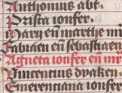 Anthonius abt.
Prisca ionfer.
Mary en̄ marthe mr
Fabiaen en̄ sebastiaen
Agneta ionfer en̄ mr
Vincentius dyaken
Emerentiana ionfer